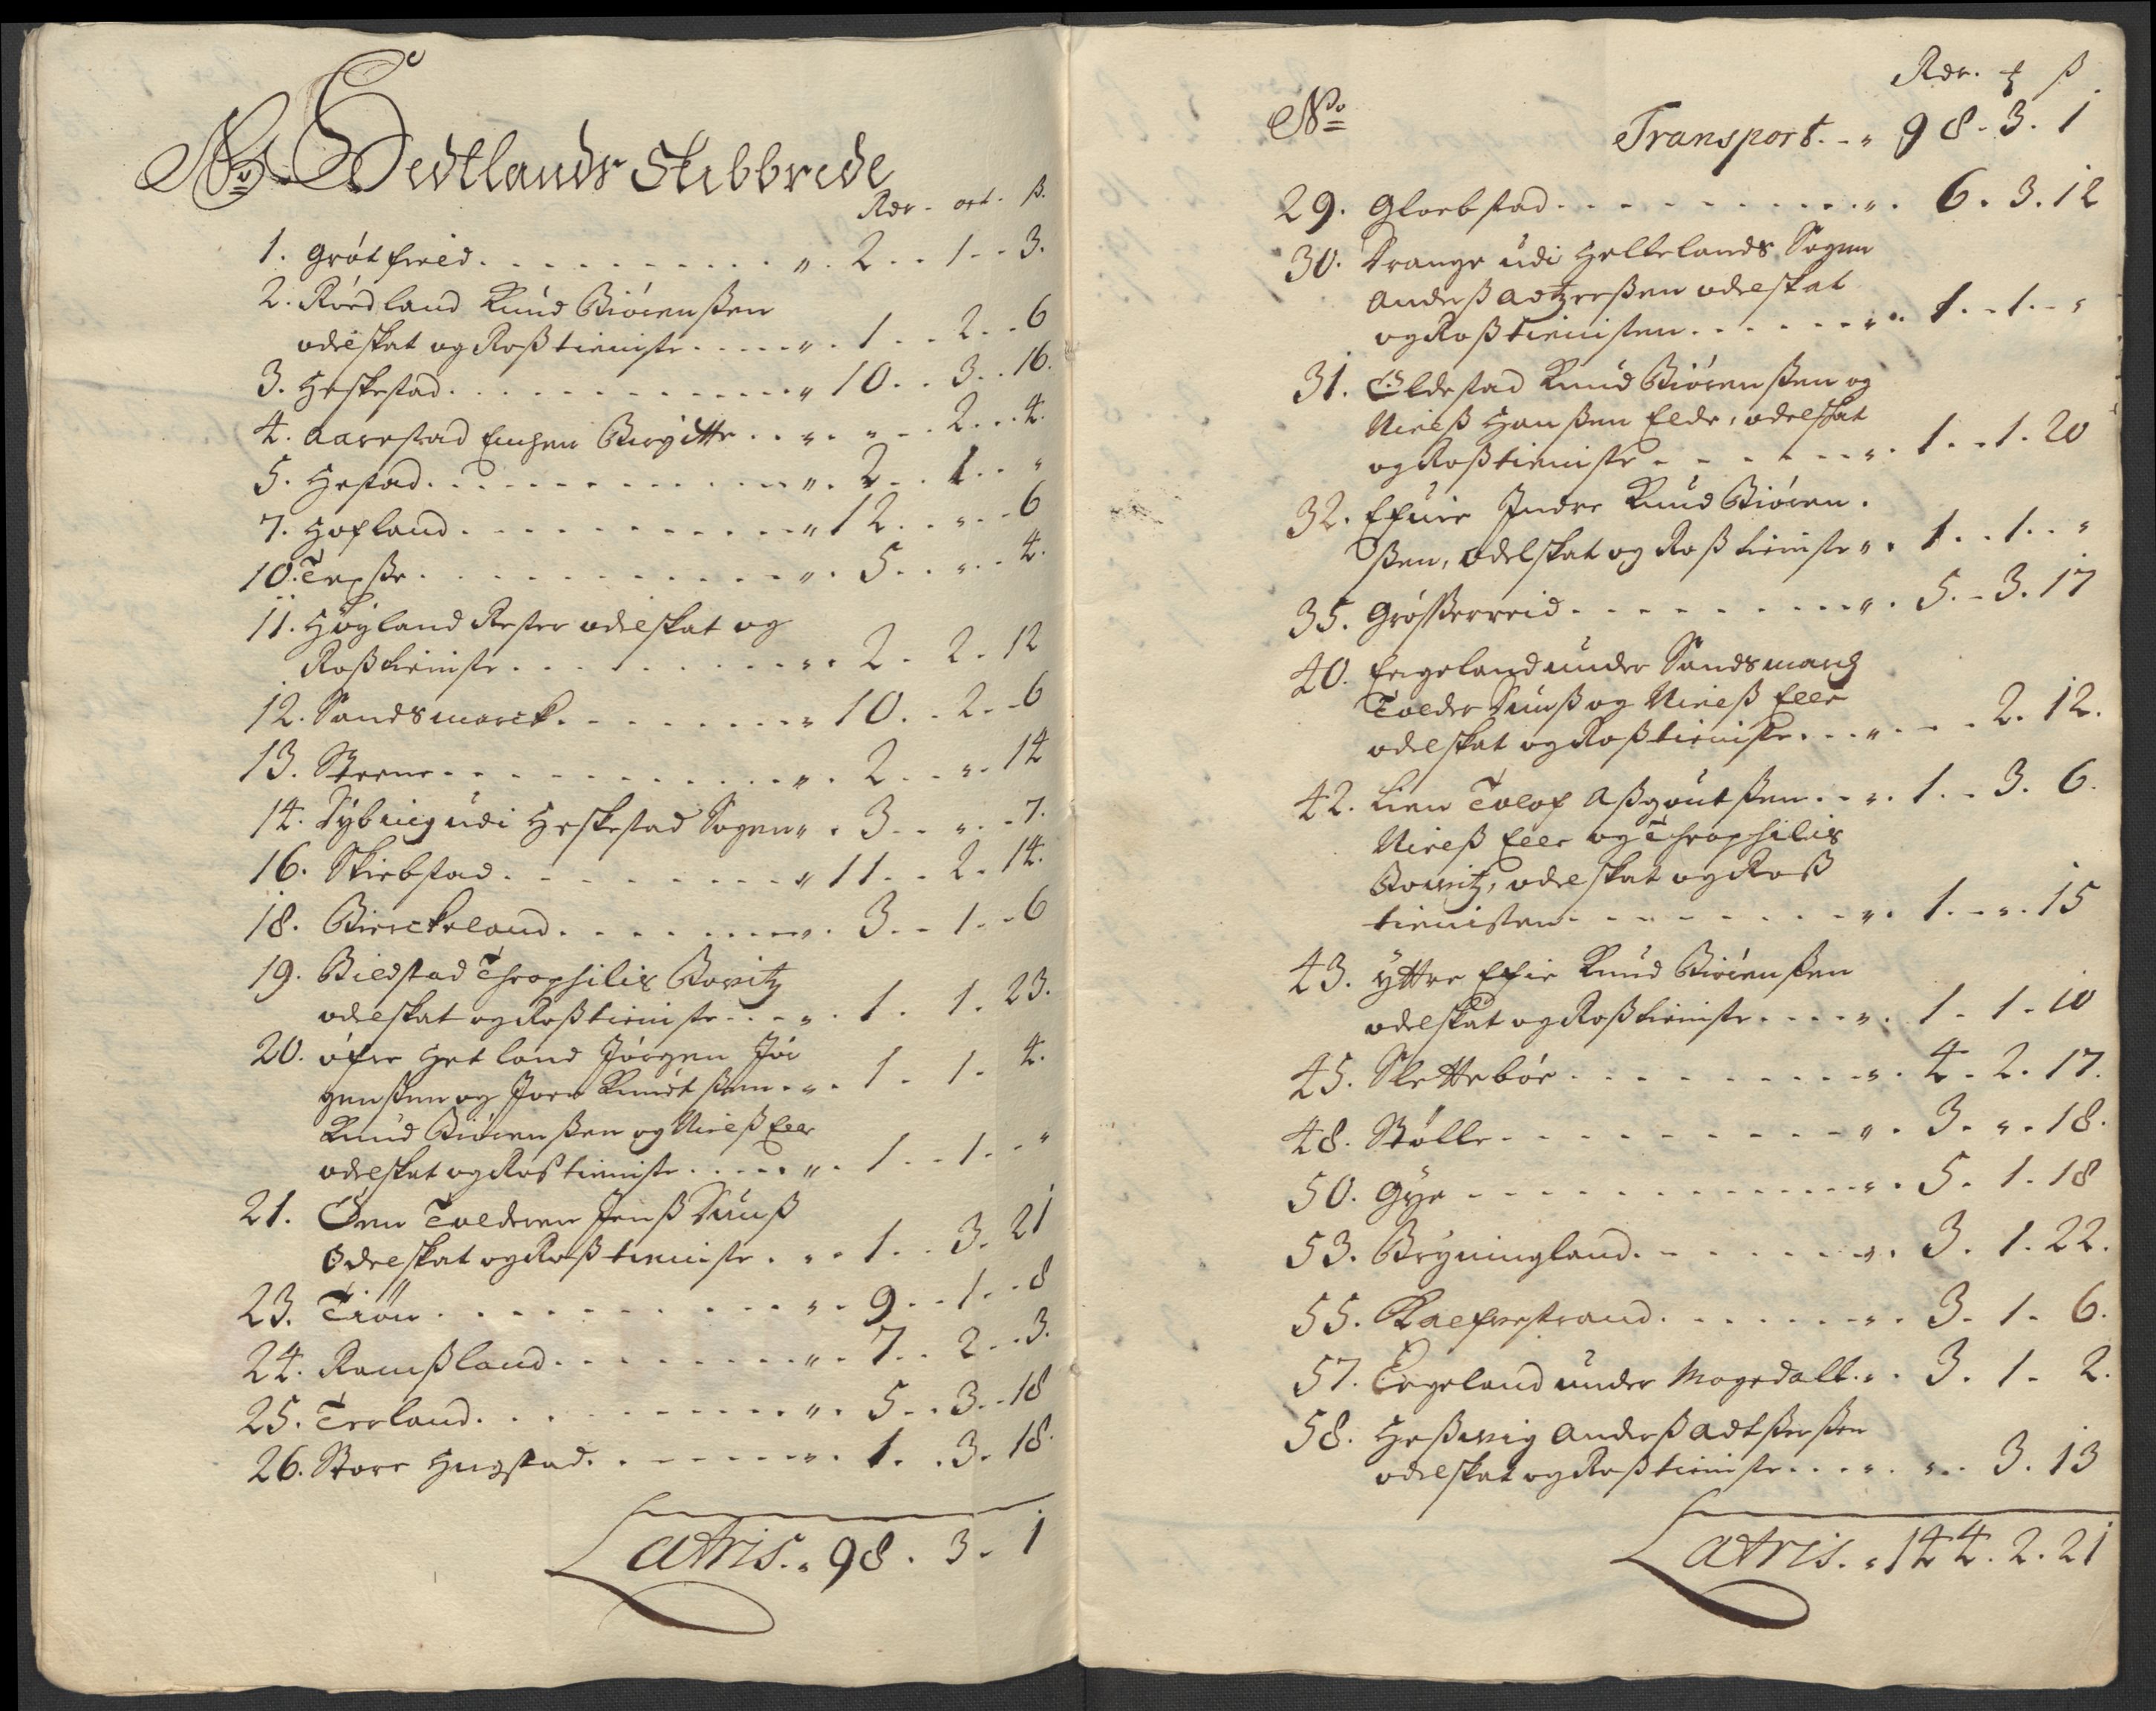 No. Hedtlands Skibbrede
Rdr - ort - ß.
1. Grøtfield . . . „ . 2 . . 1 - - 3.
2. Rørdland Knud Biørenßen
odelskat og Roßtieniste . . . „ . 1 . . 2 . . 6
3. Heskestad . . . „ 10 . . 3 . . 16.
4. Aarestad Enchen Birgitte . . „ . „ - - 2 . . 4.
5. Hestad . . . „ . 2 . . 1 . . „
7. Hofland . . . „ 12 . . „ . - 6
10. Texße . . . „ . 5 . . „ . . 4.
11. Høyland Rester odelskat og
Roßtieniste . . . „ . 2 - 2 - 12
12. Sandsmarck . . . „ 10 . . 2 . - 6
13. Steene . . . „ . 2 . . „ . 14
14. Dybuig udi Heskestad Sogen „ . 3 . . „ . - 7.
16. Skiebstad . . . „ 11 . . 2 . 14.
18. Bierckeland . . . „ . 3 . - 1 . - 6
19. Biedstad Theophilis Bowitz
odelskat og Roßtieniste . . „ . 1 . 1 . 23.
20. øfre Hetland Jørgen Jør
genßen og Joen Knudtßen . „ . 1 - 1 - 4.
Knud Biørenßen og Nielß Eller
odelskat og Rostieniste . . . „ . 1 . - 1 . - „
21. Øen Tolderen Jenß Duuß
Odelskat og Roßtieniste . „ . 1 . . 3 . 21
23. Tiøn . . . „ . 9 . . 1 . - 8
24. Ramßland . . . „ . 7 . . 2 . . 3.
25. Terland . . . „ . 5 . . 3 . - 18
26. Store Hugstad . . . „ . 1 . . 3 . 18.
Latris . „ 98 . 3 - 1
Rdr. ₰ ß
No
Transport . - „ 98 - 3 . 1
29. Gloebstad . . . „ . 6 . 3 . 12
30. Drange udi Hellelands Sogen
Anderß Adtzerßen odelskat
og Roßtienisten . . . „ . 1 . - 1 . - „
31. Eldestad Knud Biørenßen og
Nielß Hanßen Elde, odelskat
og Roßtieniste . . . „ . 1 . - 1 . 20
32. Efuie Indre Knud Biøren .
ßen, Odelskat og Roß tieniste „ . 1 . . 1 . . „
35. Grøsserreid . . . „ . 5 . - 3 . 17
40. Eigeland under Sandsmarck
Tolder Duuß og Nielß Eller
odelskat og Roßtieniste . . . „ . - - 2 . 12.
42. Lien Tolof Aßgoutßen . . „ . 1 . - 3 . 6.
Nielß Eller og Theophilis
Bowitz, odelskat og Roß
tienisten . . . „ . 1 . - „ . 15
43. Yttre Efie Knud Biørenßen
odelskat og Roßtieniste . . . „ . 1 - 1 - 10
45. Slettebøe . . . „ . 4 . 2 . 17.
48. Stølle . . . „ . 3 . „ . 18.
50. Gÿe . . . „ . 5 . 1 . 18
53. Brÿningland . . . „ . 3 . 1 . 22.
55. Kalfuestrand . . . „ . 3 . 1 - 6.
57. Eigeland under Mogedall . „ . 3 . 1 - 2.
58. Heßwig Anderß Adtßerßen
odelskat og Roßtieniste . . . „ . „ . . 3 . 13
Latris . „ 144 . 2 . 21